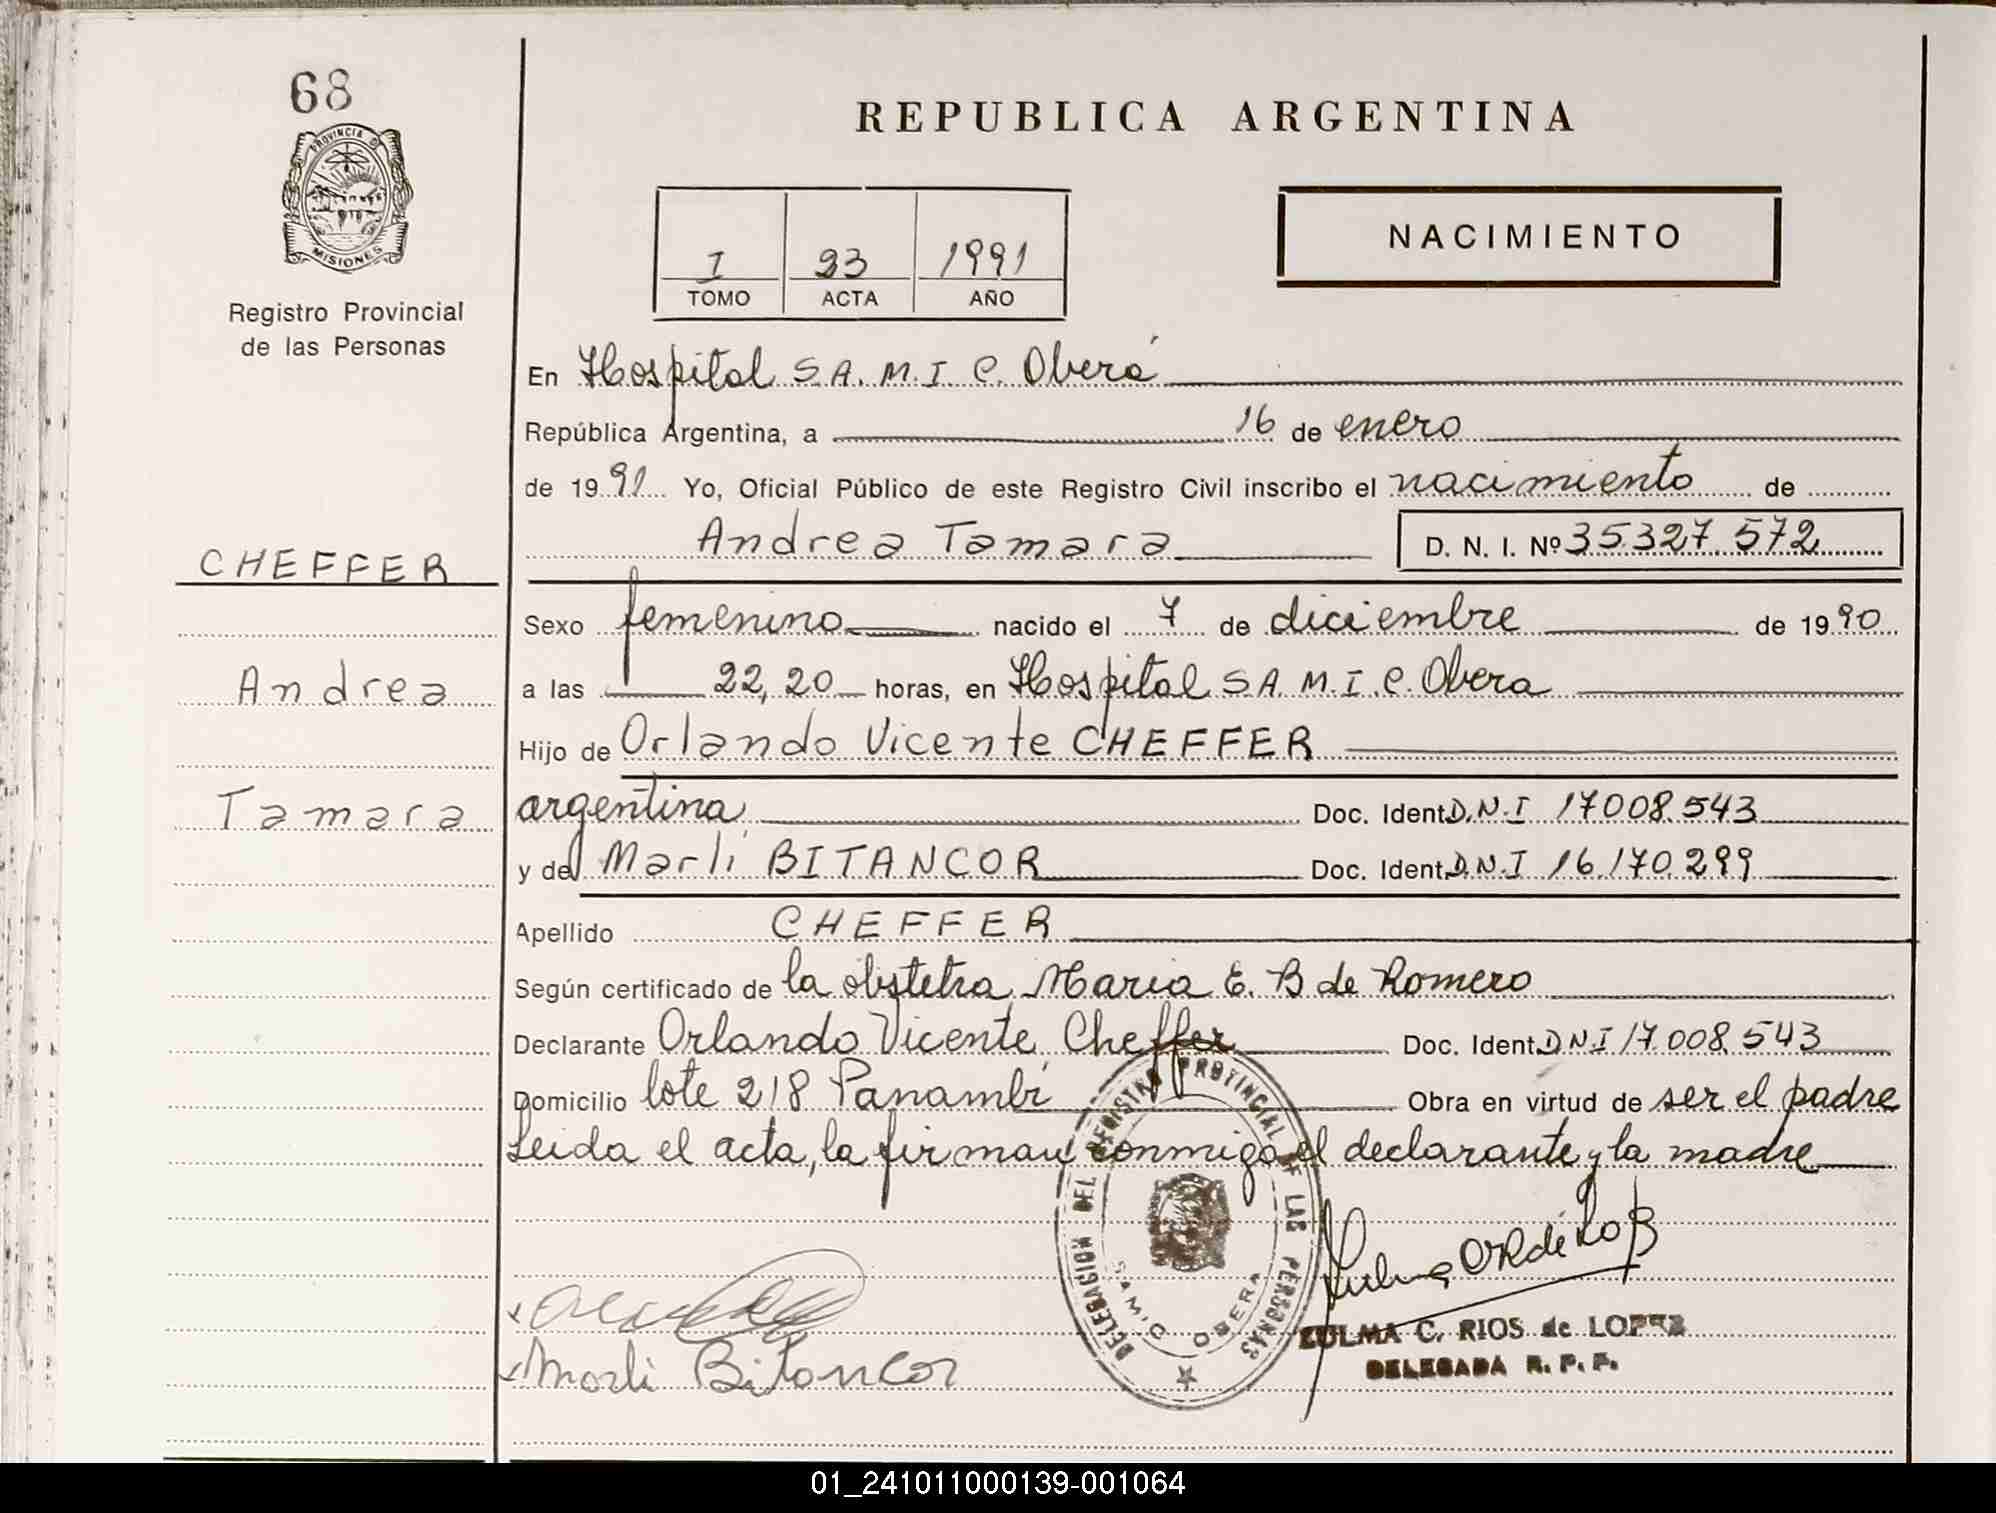 68
PROVINCIA D
MISIONES
Registro Provincial
de las Personas
CHEFFER
Andrea
Tamara
REPUBLICA ARGENTINA
I 93 1991
TOMO ACTA AÑO
NACIMIENTO
En Hospital S.A.M.I.C. Oberá
República Argentina, a 16 de enero
de 1991 Yo, Oficial Público de este Registro Civil inscribo el nacimiento de
Andrea Tamara D. N. I. Nº 35.327.572
Sexo femenino nacido el 7 de diciembre de 1990
a las 22,20 horas, en Hospital S.A.M.I.C. Obera
Hijo de Orlando Vicente CHEFFER
argentina Doc. Ident. D.N.I 17.008.543
y de Marli BITANCOR Doc. Ident. D.N.I 16.170.299
Apellido CHEFFER
Según certificado de la obstetra Maria E. B de Romero
Declarante Orlando Vicente Cheffer Doc. Ident. D.N.I 17.008.543
Domicilio lote 218 Panambí Obra en virtud de ser el padre
Leida el acta, la firman conmigo el declarante y la madre
DELEGACION DEL REGISTRO PROVINCIAL DE LAS PERSONAS
SAMIC OBERA
Marli Bitancor
ZULMA C. RIOS de LOPEZ
DELEGADA R. P. P.
01_241011000139-001064